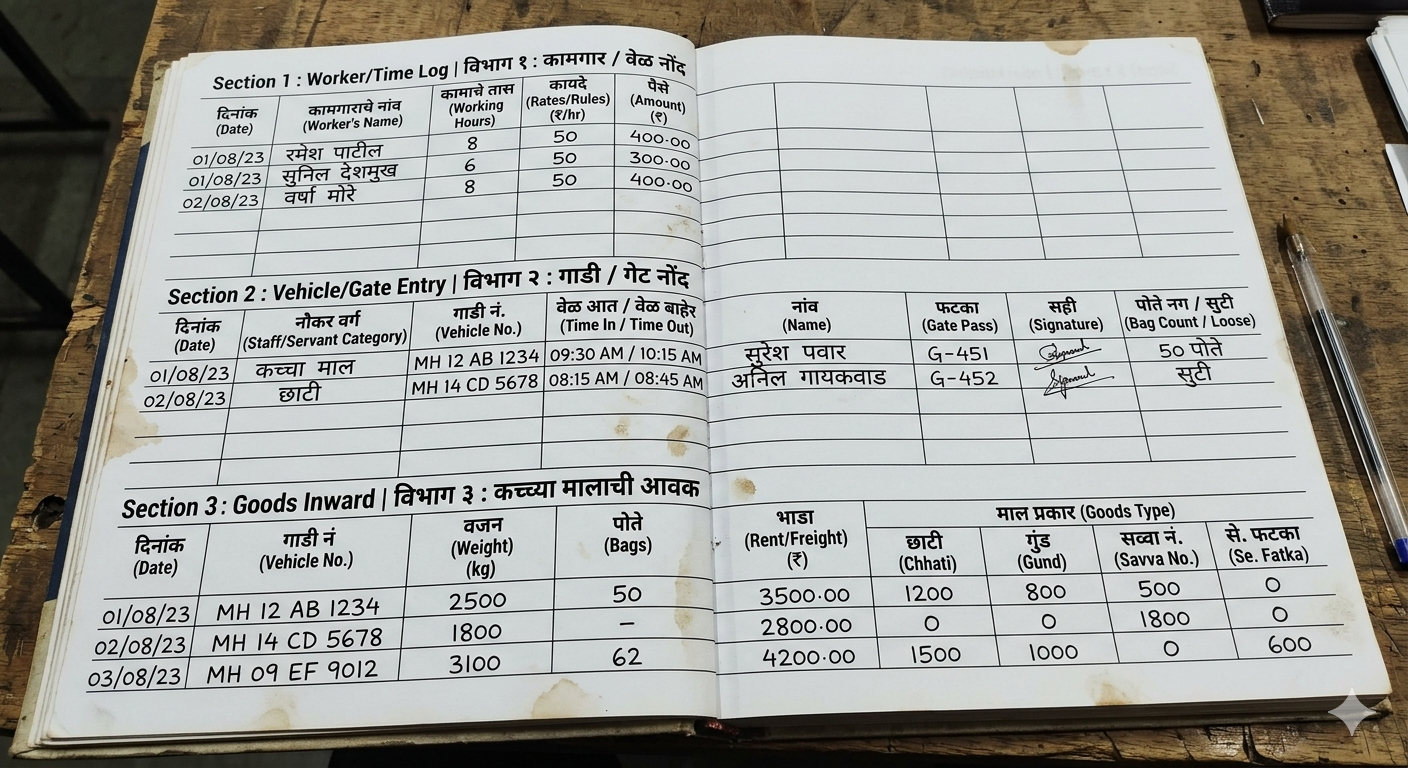 Section 1 : Worker/Time Log | विभाग १ : कामगार / वेळ नोंद
दिनांक (Date) कामगाराचे नांव (Worker's Name) कामाचे तास (Working Hours) कायदे (Rates/Rules) (₹/hr) पैसे (Amount) (₹)
01/08/23 रमेश पाटील 8 50 400.00
01/08/23 सुनिल देशमुख 6 50 300.00
02/08/23 वर्षा मोरे 8 50 400.00
Section 2 : Vehicle/Gate Entry | विभाग २ : गाडी / गेट नोंद
दिनांक (Date) नौकर वर्ग (Staff/Servant Category) गाडी नं. (Vehicle No.) वेळ आत / वेळ बाहेर (Time In / Time Out) नांव (Name) फटका (Gate Pass) सही (Signature) पोते नग / सुटी (Bag Count / Loose)
01/08/23 कच्चा माल MH 12 AB 1234 09:30 AM / 10:15 AM सुरेश पवार G-451 50 पोते
02/08/23 छाटी MH 14 CD 5678 08:15 AM / 08:45 AM अनिल गायकवाड G-452 सुटी
Section 3 : Goods Inward | विभाग ३ : कच्च्या मालाची आवक
माल प्रकार (Goods Type)
दिनांक (Date) गाडी नं (Vehicle No.) वजन (Weight) (kg) पोते (Bags) भाडा (Rent/Freight) (₹) छाटी (Chhati) गुंड (Gund) सव्वा नं. (Savva No.) से. फटका (Se. Fatka)
01/08/23 MH 12 AB 1234 2500 50 3500.00 1200 800 500 0
02/08/23 MH 14 CD 5678 1800 – 2800.00 0 0 1800 0
03/08/23 MH 09 EF 9012 3100 62 4200.00 1500 1000 0 600